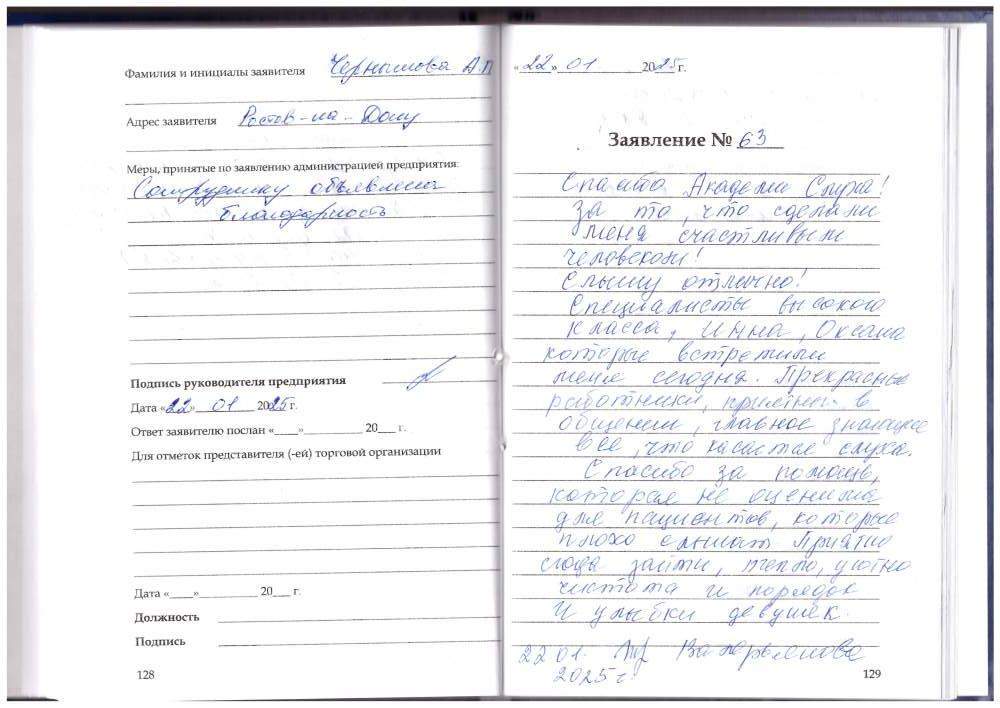 Фамилия и инициалы заявителя Чернышова А.П
Адрес заявителя Ростов-на-Дону
Меры, принятые по заявлению администрацией предприятия:
Сотруднику объявлена
благодарность
Подпись руководителя предприятия
Дата «22» 01 2025 г.
Ответ заявителю послан «____»____________ 20___ г.
Для отметок представителя (-ей) торговой организации
Дата «____»____________ 20___ г.
Должность
Подпись
128
«22» 01 2025г.
Заявление № 63
Спасибо Академи Слуха!
За то, что сделали
меня счастливым
человеком!
Слышу отлично!
Специалисты высокого
класса, Инна, Оксана
которые встретили
меня сегодня. Прекрасные
работники, приятны в
общении, главное знающие
все, что касается слуха.
Спасибо за помощь,
которая не оценима
для пациентов, которые
плохо слышат Приятно
сюда зайти, тепло, уютно
чистота и порядок
И улыбки девушек.
22 01.
2025 г
129